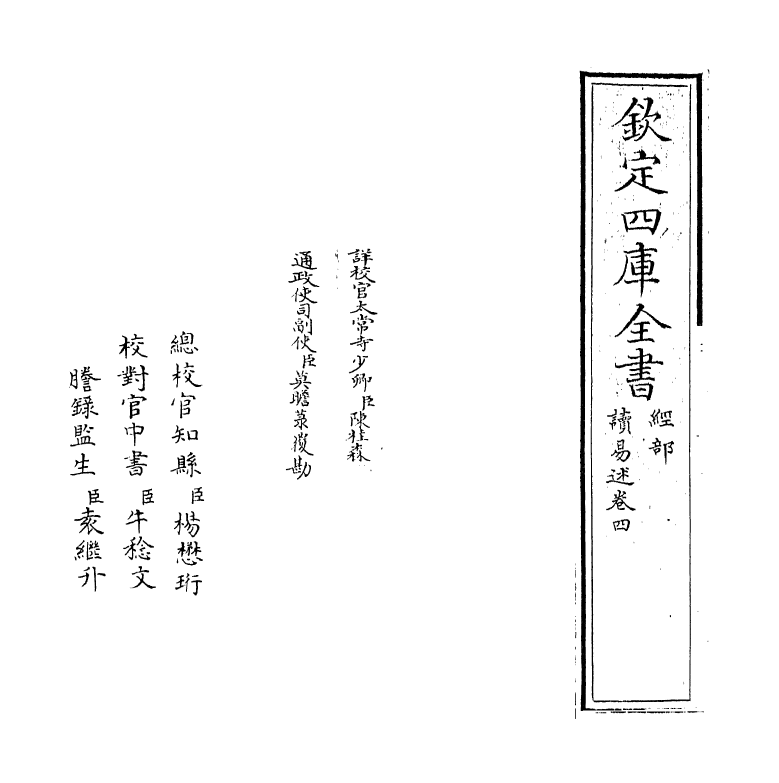 欽定四庫全書
經部
讀易述卷四
詳校官太常寺少卿臣陳桂森
通政使司副使臣莫瞻菉覆勘
總校官知縣臣楊懋珩
校對官中書臣牛稔文
謄錄監生臣袁繼升